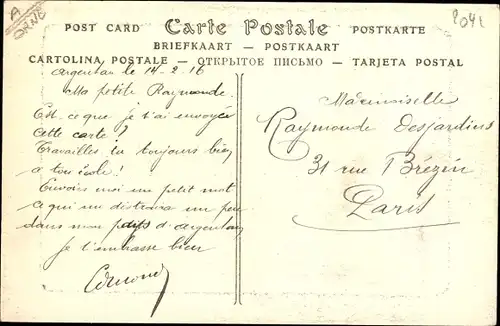 A
ORNE
2041
POST CARD Carte Postale POSTKARTE
BRIEFKAART — POSTKAART
CARTOLINA POSTALE — ОТКРЫТОЕ ПИСЬМО — TARJETA POSTAL
argentan le 14-2-16
Ma petite Raymonde.
Est-ce que je t'ai envoyée
cette carte?
Travailles tu toujours bien
a ton école!
Envois moi un petit mot
ce qui me distraira un peu
dans mon d'argentan
je t'embrasse bien
Mademoiselle
Raymonde Desjardins
31 rue Brézin
Paris